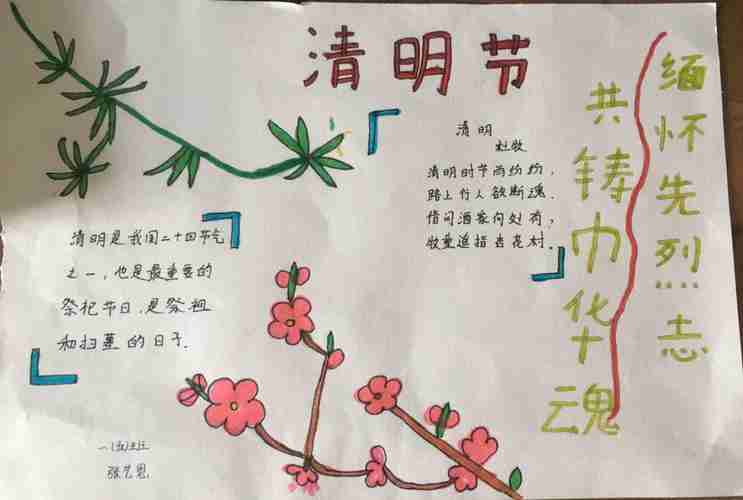 清明节
清明
杜牧
清明时节雨纷纷，
路上行人欲断魂．
借问酒家何处有，
牧童遥指杏花村．
缅怀先烈志
共铸巾华魂
清明是我国二十四节气
之一，也是最重要的
祭祀节日，是祭祖
和扫墓的日子．
一(五)班
张艺恩